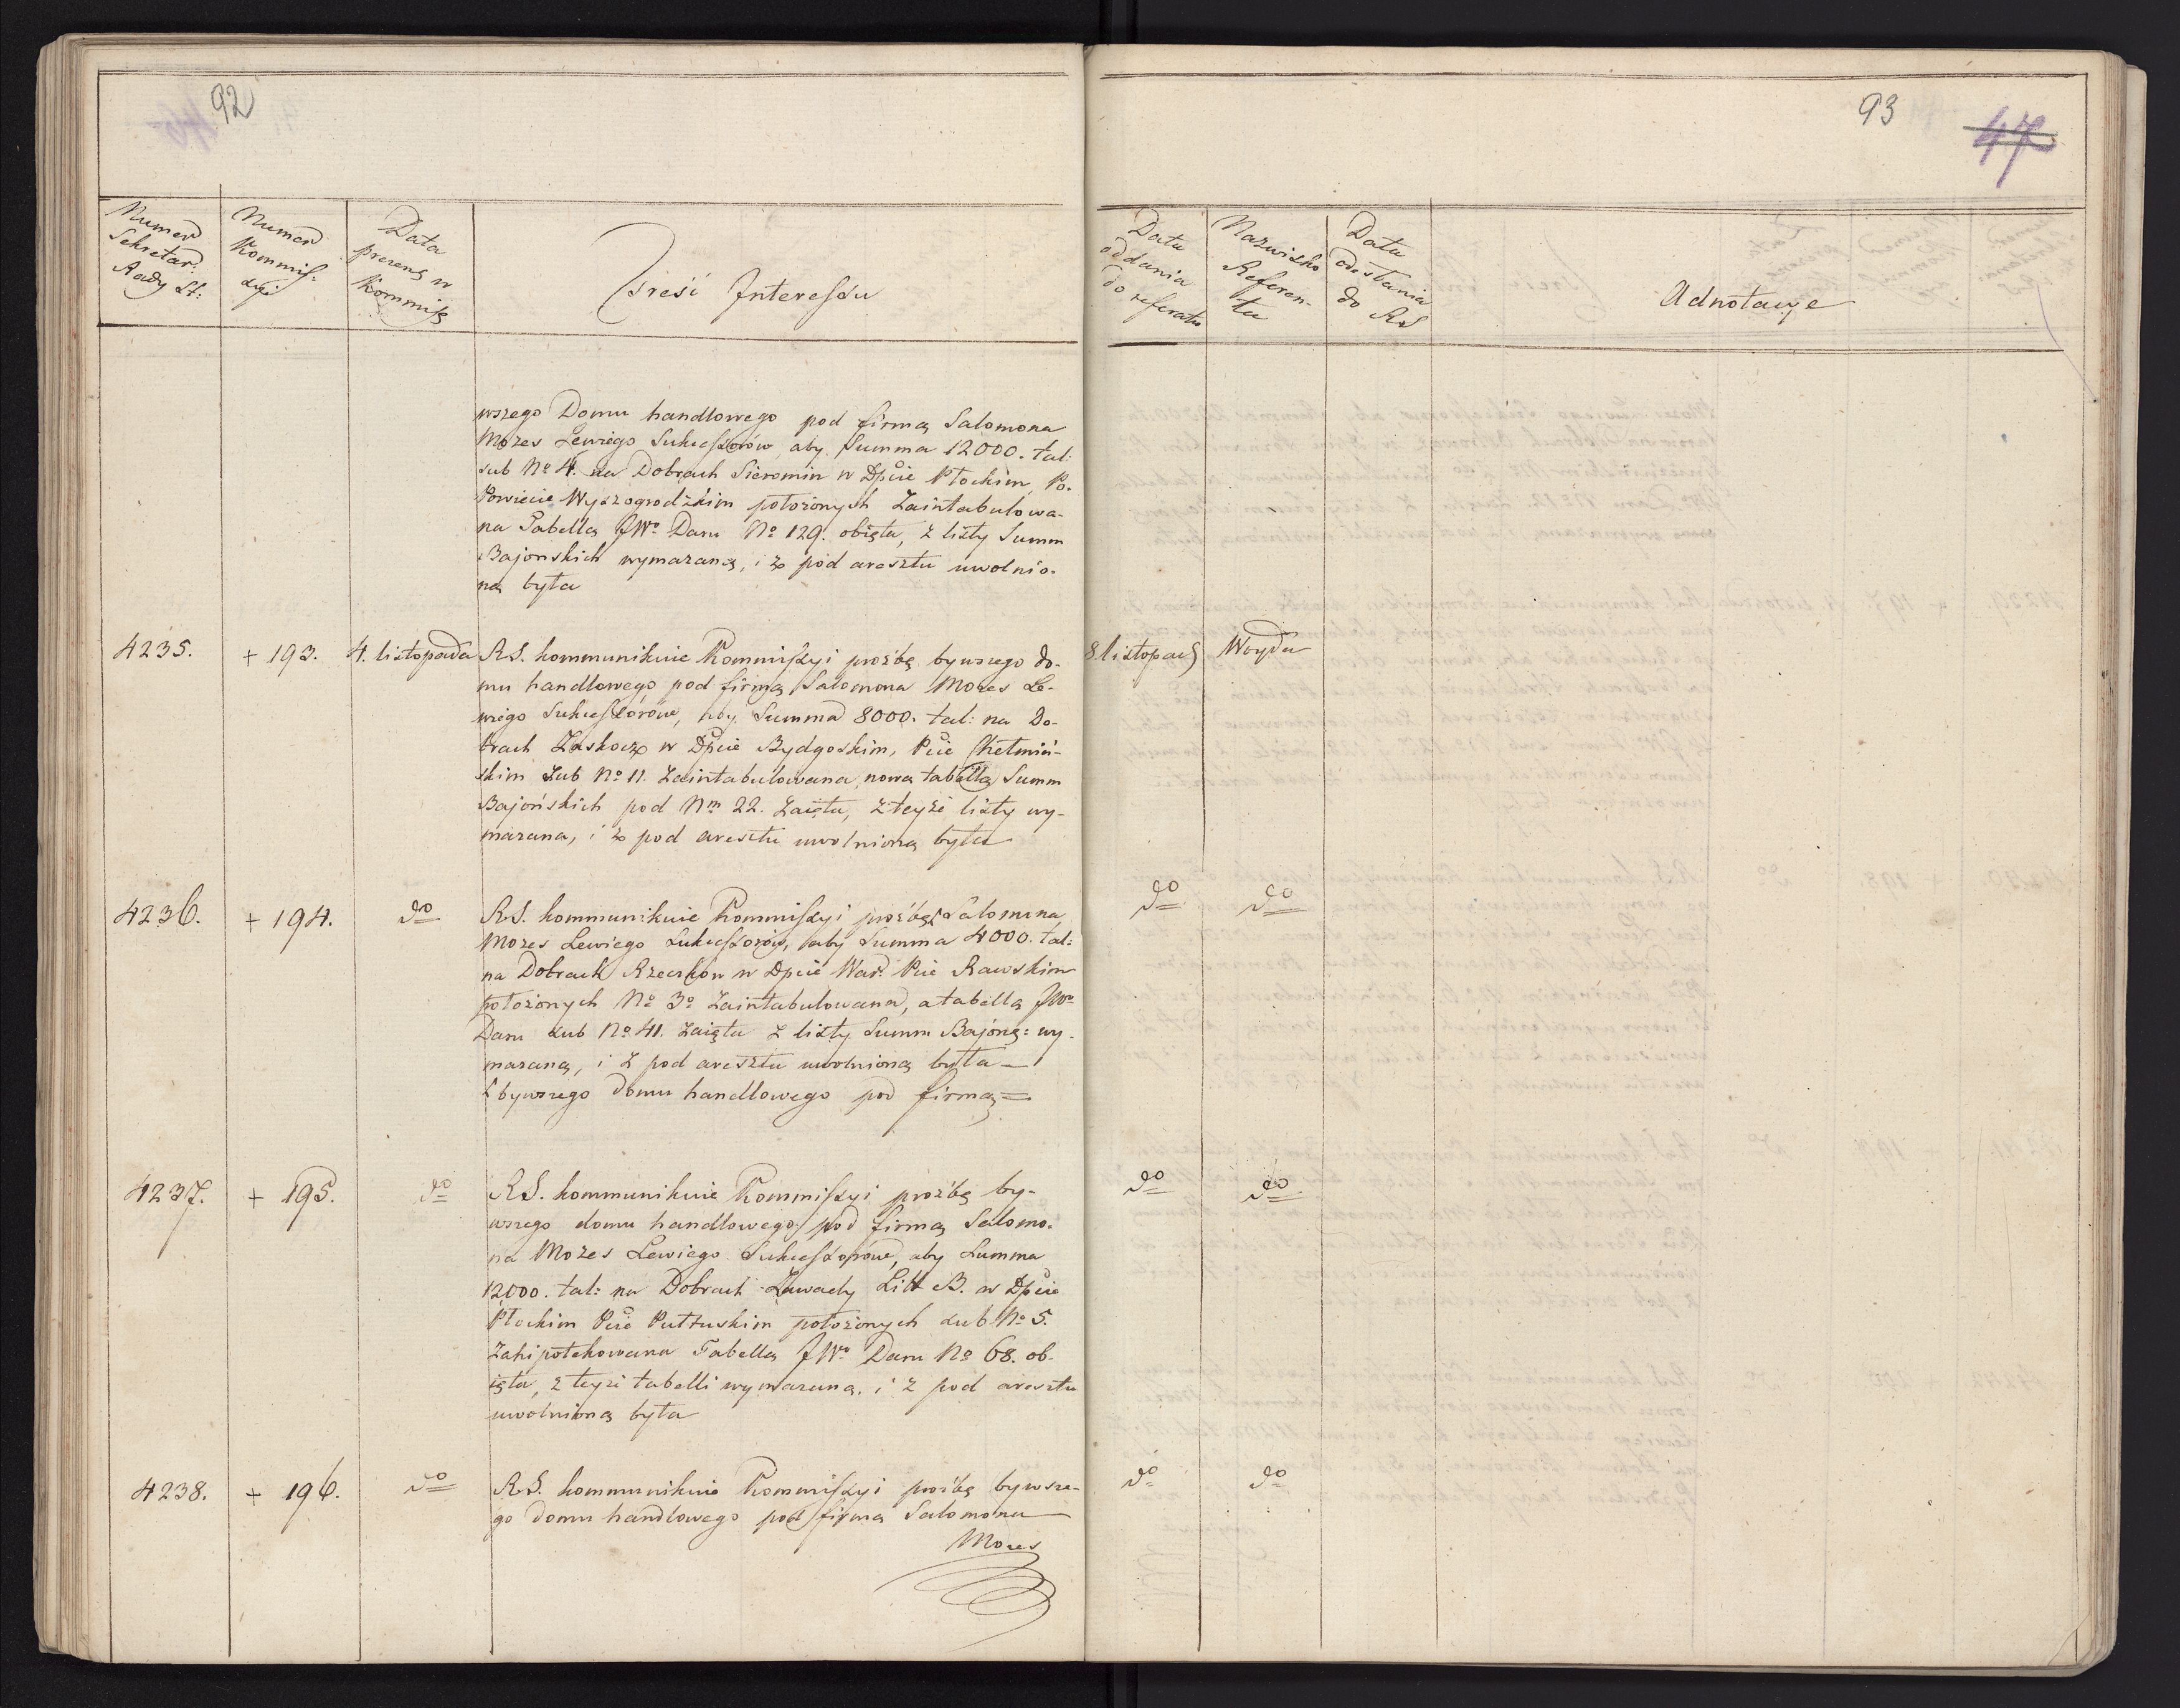 92
Numer Sekretar: Rady St:
Numer Kommis: syi
Data prezent w Kommis
Treść Interessu
wszego Domu handlowego pod firmą Salomona
Mozes Lewiego Sukcessorów, aby Summa 12000. tal:
sub No 4. na Dobrach Sieromin w Dpcie Płockim, Po-
Powiecie Wyszogrodzkim położonych zaintabulowa-
na Tabellą JWo Daru No 129. obięta, z listy Summ
Bajonskich wymazaną, i z pod aresztu uwolnio-
ną była
4235. + 193. 4. listopada RS. kommunikuie Kommissyi prozbę bywszego do-
mu handlowego pod firmą Salomona Mozes Le-
wiego Sukcessorów, aby Summa 8000. tal: na Do-
brach Zaskocz w Dpcie Bydgoskim, Pcie Chełmiń-
skim sub No 11. zaintabulowana, nową tabellą Summ
Bajońskich pod Nm 22. zaięta, z teyże listy wy-
mazana, i z pod aresztu uwolnioną była
4236. + 194. do RS. kommunikuie Kommissyi prozbę Salomona
Mozes Lewiego Sukcessorów, aby Summa 4000. tal:
na Dobrach Rzeczków w Dpcie War: Pcie Rawskim
położonych No 3o zaintabulowana, a tabellą JWo
Daru sub No 41. zaięta z listy Summ Bajons: wy-
mazaną, i z pod aresztu uwolnioną była
bywszego domu handlowego pod firmą
4237. + 195. do RS. kommunikuie Kommissyi prozbę by-
wszego domu handlowego pod firmą Salomo-
na Mozes Lewiego Sukcessorów, aby Summa
12000. tal: na Dobrach Zawady Litt B. w Dpcie
Płockim Pcie Pułtuskim położonych sub No 5.
zahipotekowana Tabellą JWo Daru No 68. ob-
ięta, z teyże tabelli wymazaną, i z pod aresztu
uwolnioną była
4238. + 196. do RS. kommunikuie Kommissyi prozbę bywsze-
go domu handlowego pod firmą Salomona
Mozes
93
47
Data oddania do referatu
Nazwisko Referen- ta
Data odesłania do RS
Adnotacye
8 listopad Woyda
do do
do do
do do